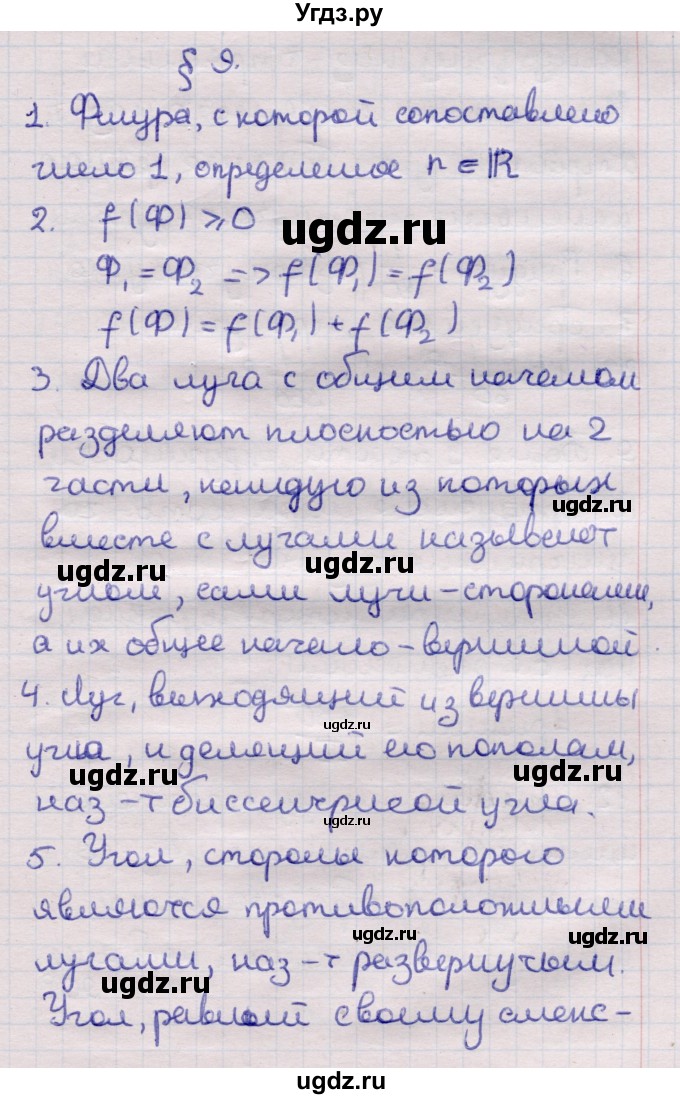 Угдз.ру
§ 9.
1. Фигура, с которой сопоставлено
число 1, определенное n ∈ ℝ
2. f(Ф) ⩾ 0
ugdz.ru
Ф₁ = Ф₂ => f(Ф₁) = f(Ф₂)
f(Ф) = f(Ф₁) + f(Ф₂)
3. Два луча с общим началом
разделяют плоскостью на 2
части, каждую из которых
ugdz.ru
вместе с лучами называют
ugdz.ru
ugdz.ru
углом, сами лучи - сторонами,
а их общее начало - вершиной.
4. Луч, выходящий из вершины
ugdz.ru
угла, и делящий его пополам,
ugdz.ru
ugdz.ru
наз-т биссектрисой угла.
ugdz.ru
5. Угол, стороны которого
являются противоположными
ugdz.ru
ugdz.ru
лучами, наз-т развернутым.
Угол, равный своему смеж-
ugdz.ru